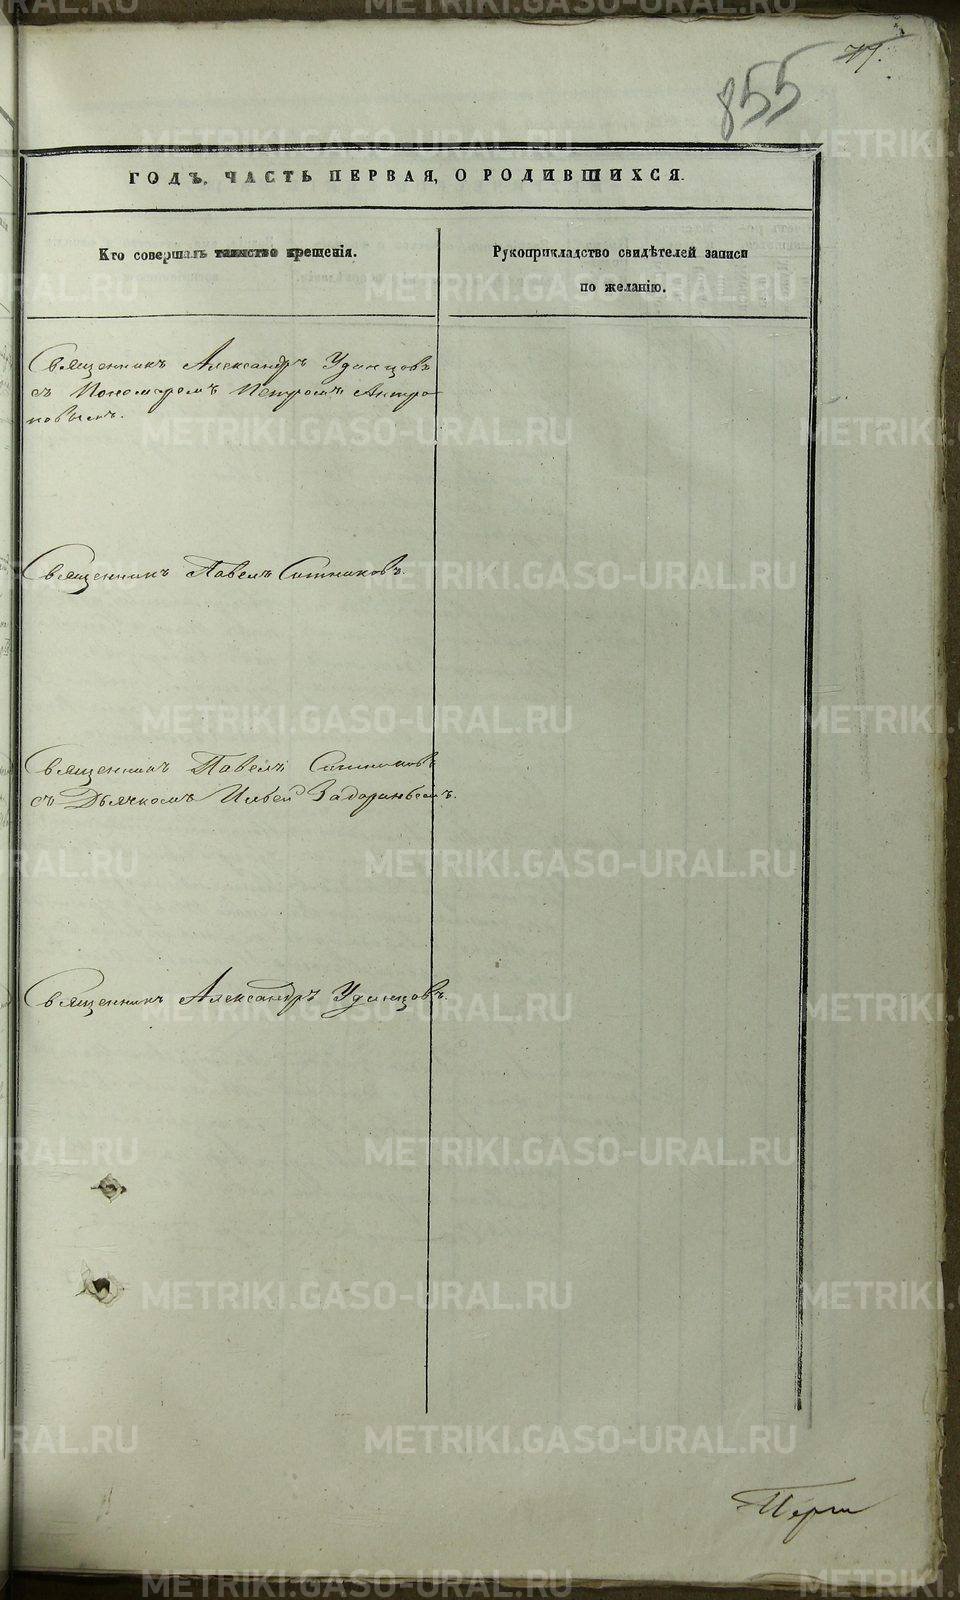 855
77.
ГОДЪ, ЧАСТЬ ПЕРВАЯ, О РОДИВШИХСЯ.
Кто совершалъ таинство крещенія.
Рукоприкладство свидѣтелей записи
по желанію.
Священникъ Александръ Удинцовъ
съ Пономаремъ Петромъ Антро-
повымъ.
Священникъ Павелъ Ситниковъ.
Священникъ Павелъ Ситниковъ
съ Дьячкомъ Ильей Задоринымъ.
Священникъ Александръ Удинцовъ.
METRIKI.GASO-URAL.RU